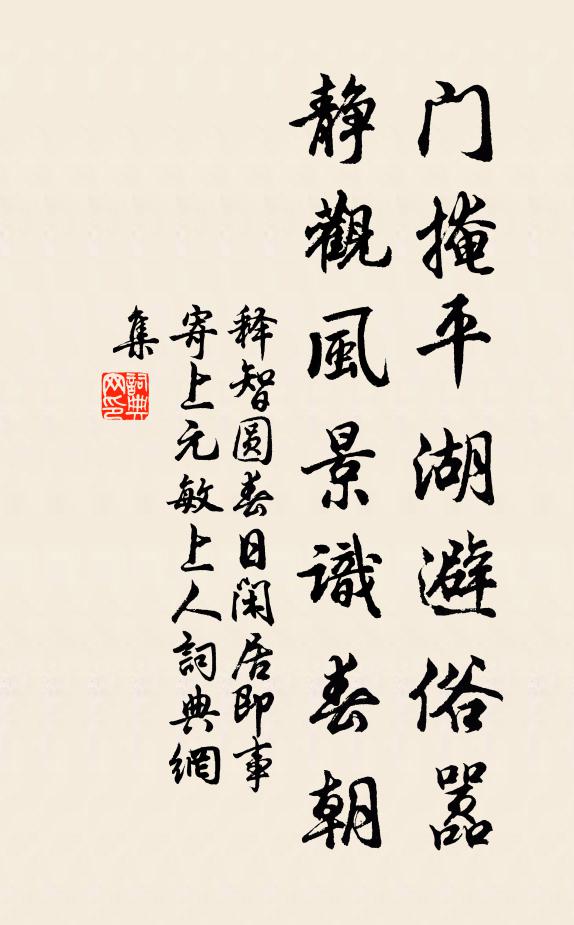 门掩平湖避俗嚣
静觀風景識春朝
释智圆春日闲居即事
寄上元敏上人詞典網
集
詞典
网印